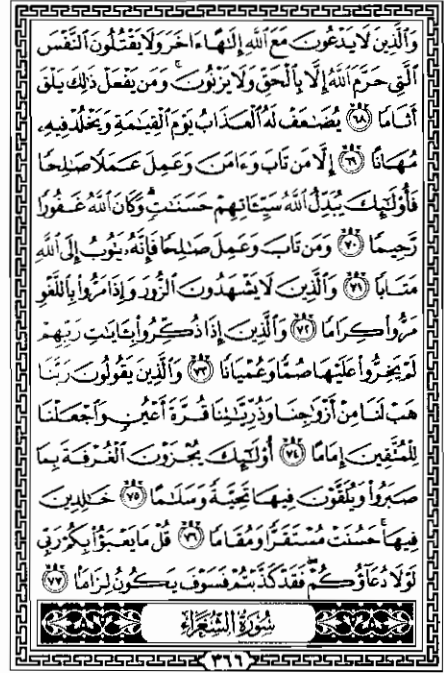 وَٱلَّذِينَ لَا يَدْعُونَ مَعَ ٱللَّهِ إِلَٰهًا ءَاخَرَ وَلَا يَقْتُلُونَ ٱلنَّفْسَ
ٱلَّتِي حَرَّمَ ٱللَّهُ إِلَّا بِٱلْحَقِّ وَلَا يَزْنُونَۚ وَمَن يَفْعَلْ ذَٰلِكَ يَلْقَ
أَثَامًا ٦٨ يُضَٰعَفْ لَهُ ٱلْعَذَابُ يَوْمَ ٱلْقِيَٰمَةِ وَيَخْلُدْ فِيهِۦ
مُهَانًا ٦٩ إِلَّا مَن تَابَ وَءَامَنَ وَعَمِلَ عَمَلًا صَٰلِحًا
فَأُو۟لَٰٓئِكَ يُبَدِّلُ ٱللَّهُ سَيِّـَٔاتِهِمْ حَسَنَٰتٍۗ وَكَانَ ٱللَّهُ غَفُورًا
رَّحِيمًا ٧٠ وَمَن تَابَ وَعَمِلَ صَٰلِحًا فَإِنَّهُۥ يَتُوبُ إِلَى ٱللَّهِ
مَتَابًا ٧١ وَٱلَّذِينَ لَا يَشْهَدُونَ ٱلزُّورَ وَإِذَا مَرُّوا۟ بِٱللَّغْوِ
مَرُّوا۟ كِرَامًا ٧٢ وَٱلَّذِينَ إِذَا ذُكِّرُوا۟ بِـَٔايَٰتِ رَبِّهِمْ
لَمْ يَخِرُّوا۟ عَلَيْهَا صُمًّا وَعُمْيَانًا ٧٣ وَٱلَّذِينَ يَقُولُونَ رَبَّنَا
هَبْ لَنَا مِنْ أَزْوَٰجِنَا وَذُرِّيَّٰتِنَا قُرَّةَ أَعْيُنٍ وَٱجْعَلْنَا
لِلْمُتَّقِينَ إِمَامًا ٧٤ أُو۟لَٰٓئِكَ يُجْزَوْنَ ٱلْغُرْفَةَ بِمَا
صَبَرُوا۟ وَيُلَقَّوْنَ فِيهَا تَحِيَّةً وَسَلَٰمًا ٧٥ خَٰلِدِينَ
فِيهَاۚ حَسُنَتْ مُسْتَقَرًّا وَمُقَامًا ٧٦ قُلْ مَا يَعْبَؤُا۟ بِكُمْ رَبِّي
لَوْلَا دُعَآؤُكُمْۖ فَقَدْ كَذَّبْتُمْ فَسَوْفَ يَكُونُ لِزَامًا ٧٧
سُورَةُ ٱلشُّعَرَاءِ
٣٦٦